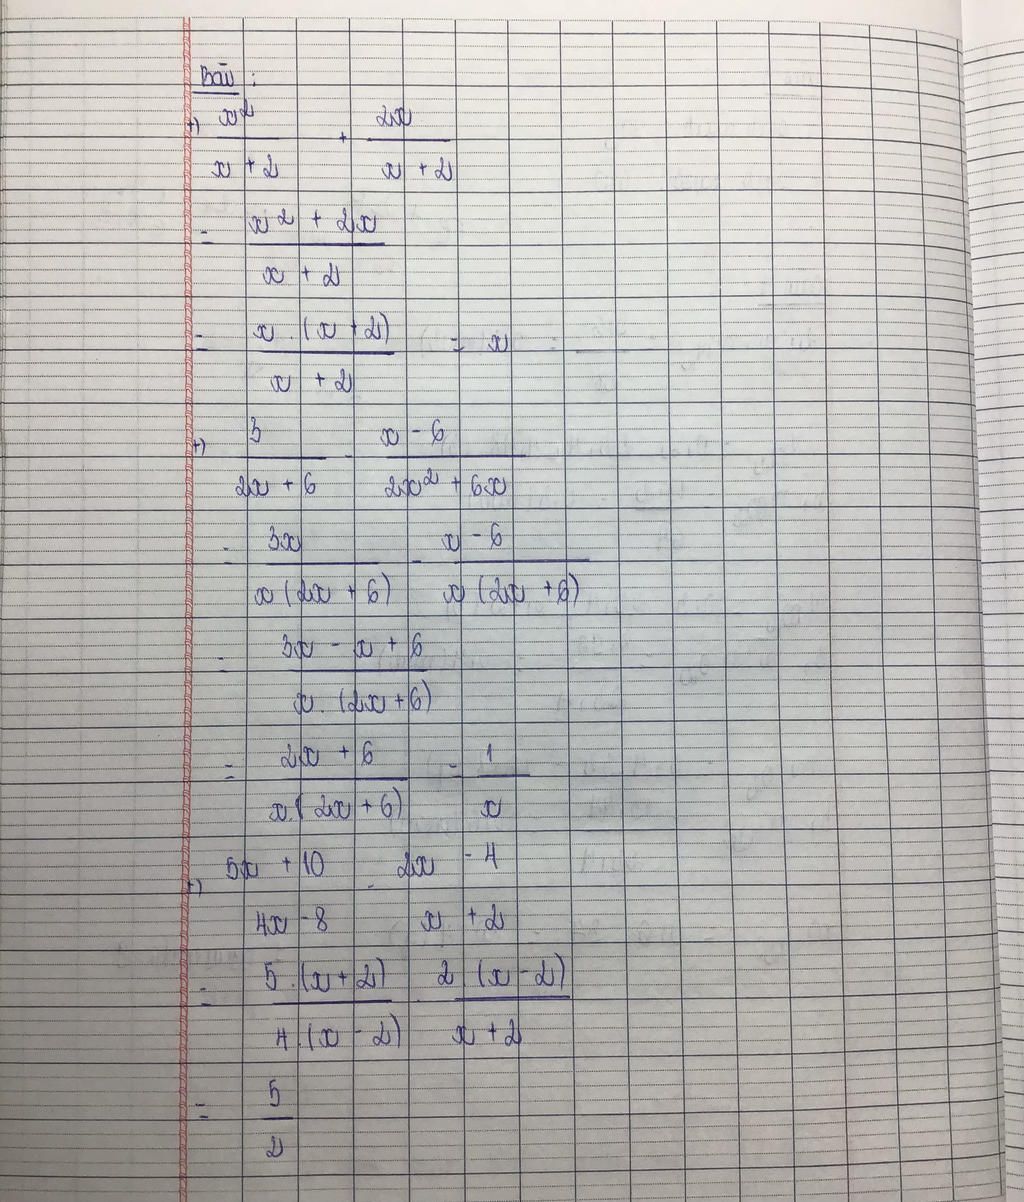 Bài :
+) x² / x + 2 + 2x / x + 2
= x² + 2x / x + 2
= x . (x + 2) / x + 2 = x
+) 3 / 2x + 6 - x - 6 / 2x² + 6x
= 3x / x (2x + 6) - x - 6 / x (2x + 6)
= 3x - x + 6 / x . (2x + 6)
= 2x + 6 / x . (2x + 6) = 1 / x
+) 5x + 10 / 4x - 8 . 2x - 4 / x + 2
= 5 . (x + 2) / 4 . (x - 2) . 2 (x - 2) / x + 2
= 5 / 2